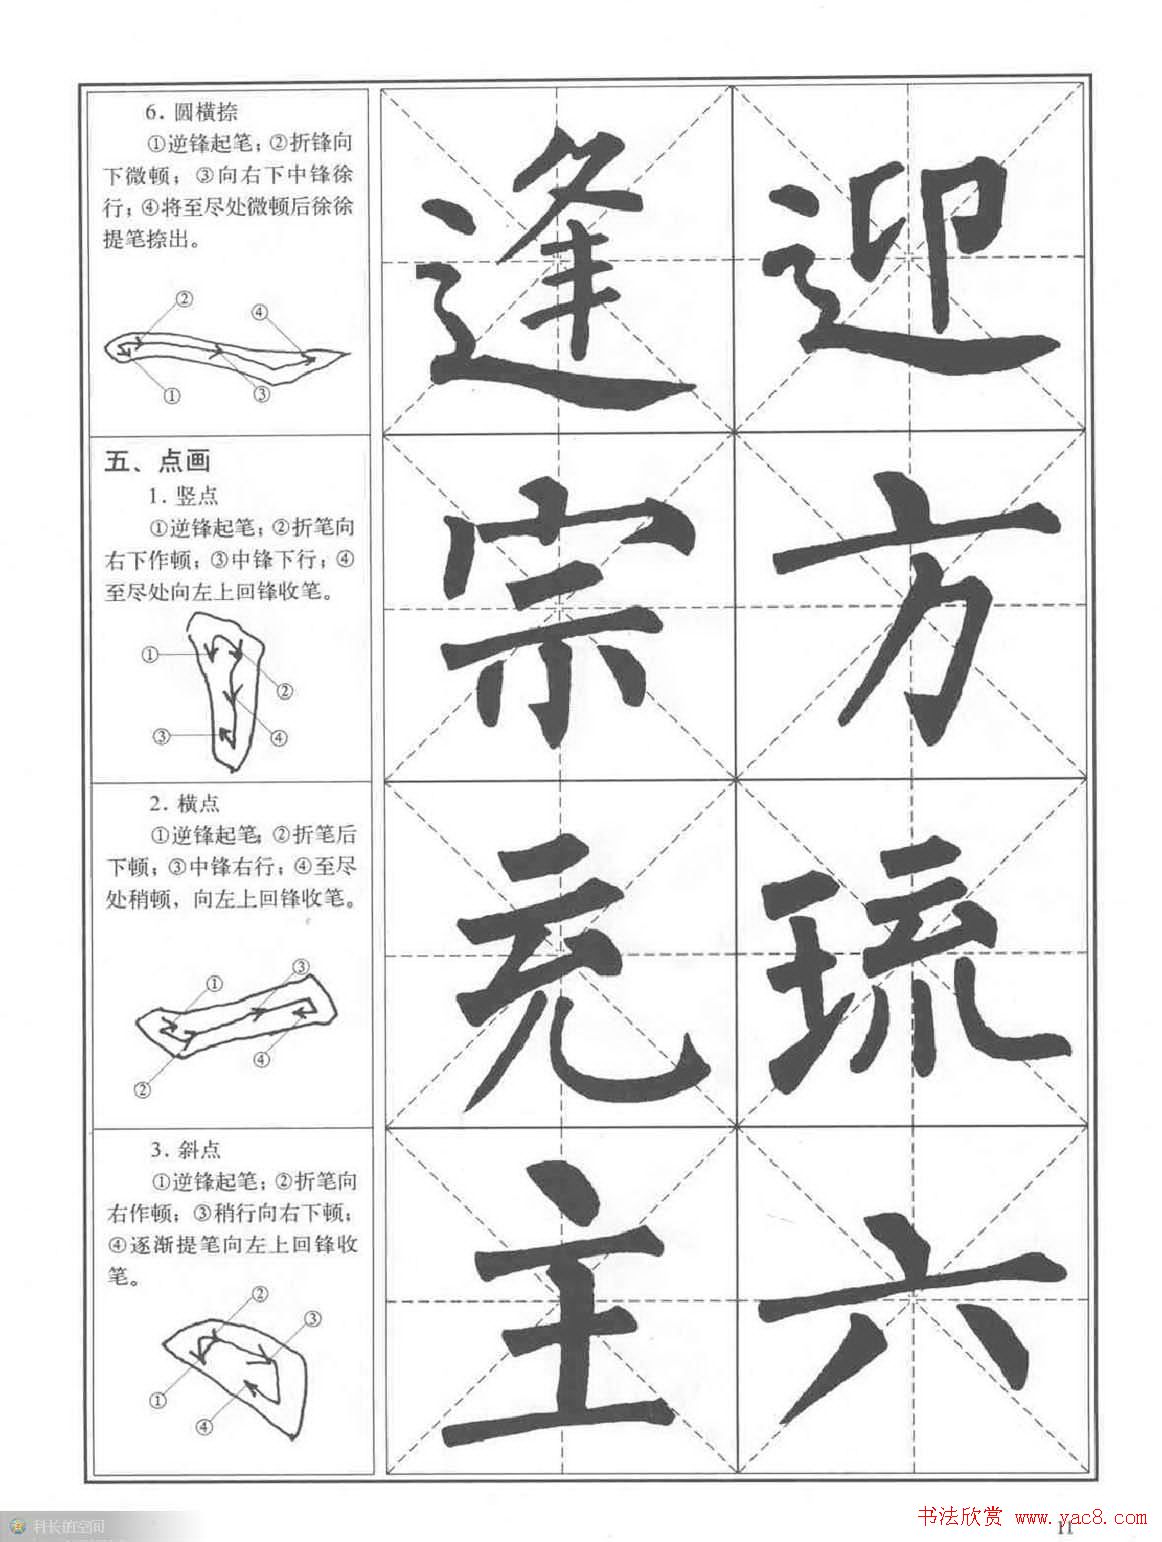 6. 圆横捺
①逆锋起笔；②折锋向
下微顿；③向右下中锋徐
行；④将至尽处微顿后徐徐
提笔捺出。
②
④
①
③
逢
迎
五、点画
1. 竖点
①逆锋起笔；②折笔向
右下作顿；③中锋下行；④
至尽处向左上回锋收笔。
①
②
③
④
宗
方
2. 横点
①逆锋起笔 ②折笔后
下顿；③中锋右行；④至尽
处稍顿，向左上回锋收笔。
③
①
④
②
充
琉
3. 斜点
①逆锋起笔；②折笔向
右作顿；③稍行向右下顿；
④逐渐提笔向左上回锋收
笔。
②
③
①
④
主
六
科长的空间
书法欣赏 www.yac8.com
11